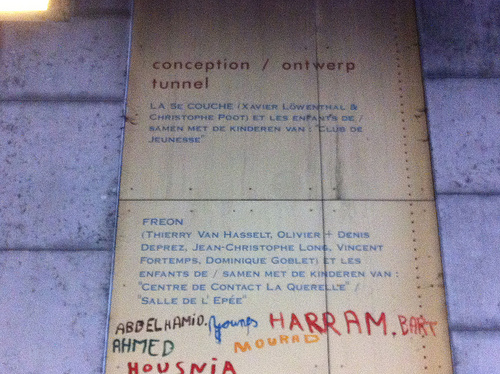 conception / ontwerp
tunnel
LA 5E COUCHE (XAVIER LÖWENTHAL &
CHRISTOPHE POOT) ET LES ENFANTS DE /
SAMEN MET DE KINDEREN VAN : "CLUB DE
JEUNESSE"
FREON
(THIERRY VAN HASSELT, OLIVIER + DENIS
DEPREZ, JEAN-CHRISTOPHE LONG, VINCENT
FORTEMPS, DOMINIQUE GOBLET) ET LES
ENFANTS DE / SAMEN MET DE KINDEREN VAN :
"CENTRE DE CONTACT LA QUERELLE" /
"SALLE DE L' EPÉE"
ABDELHAMID. Younes HARRAM. BART
AHMED MOURAD
HOUSNIA